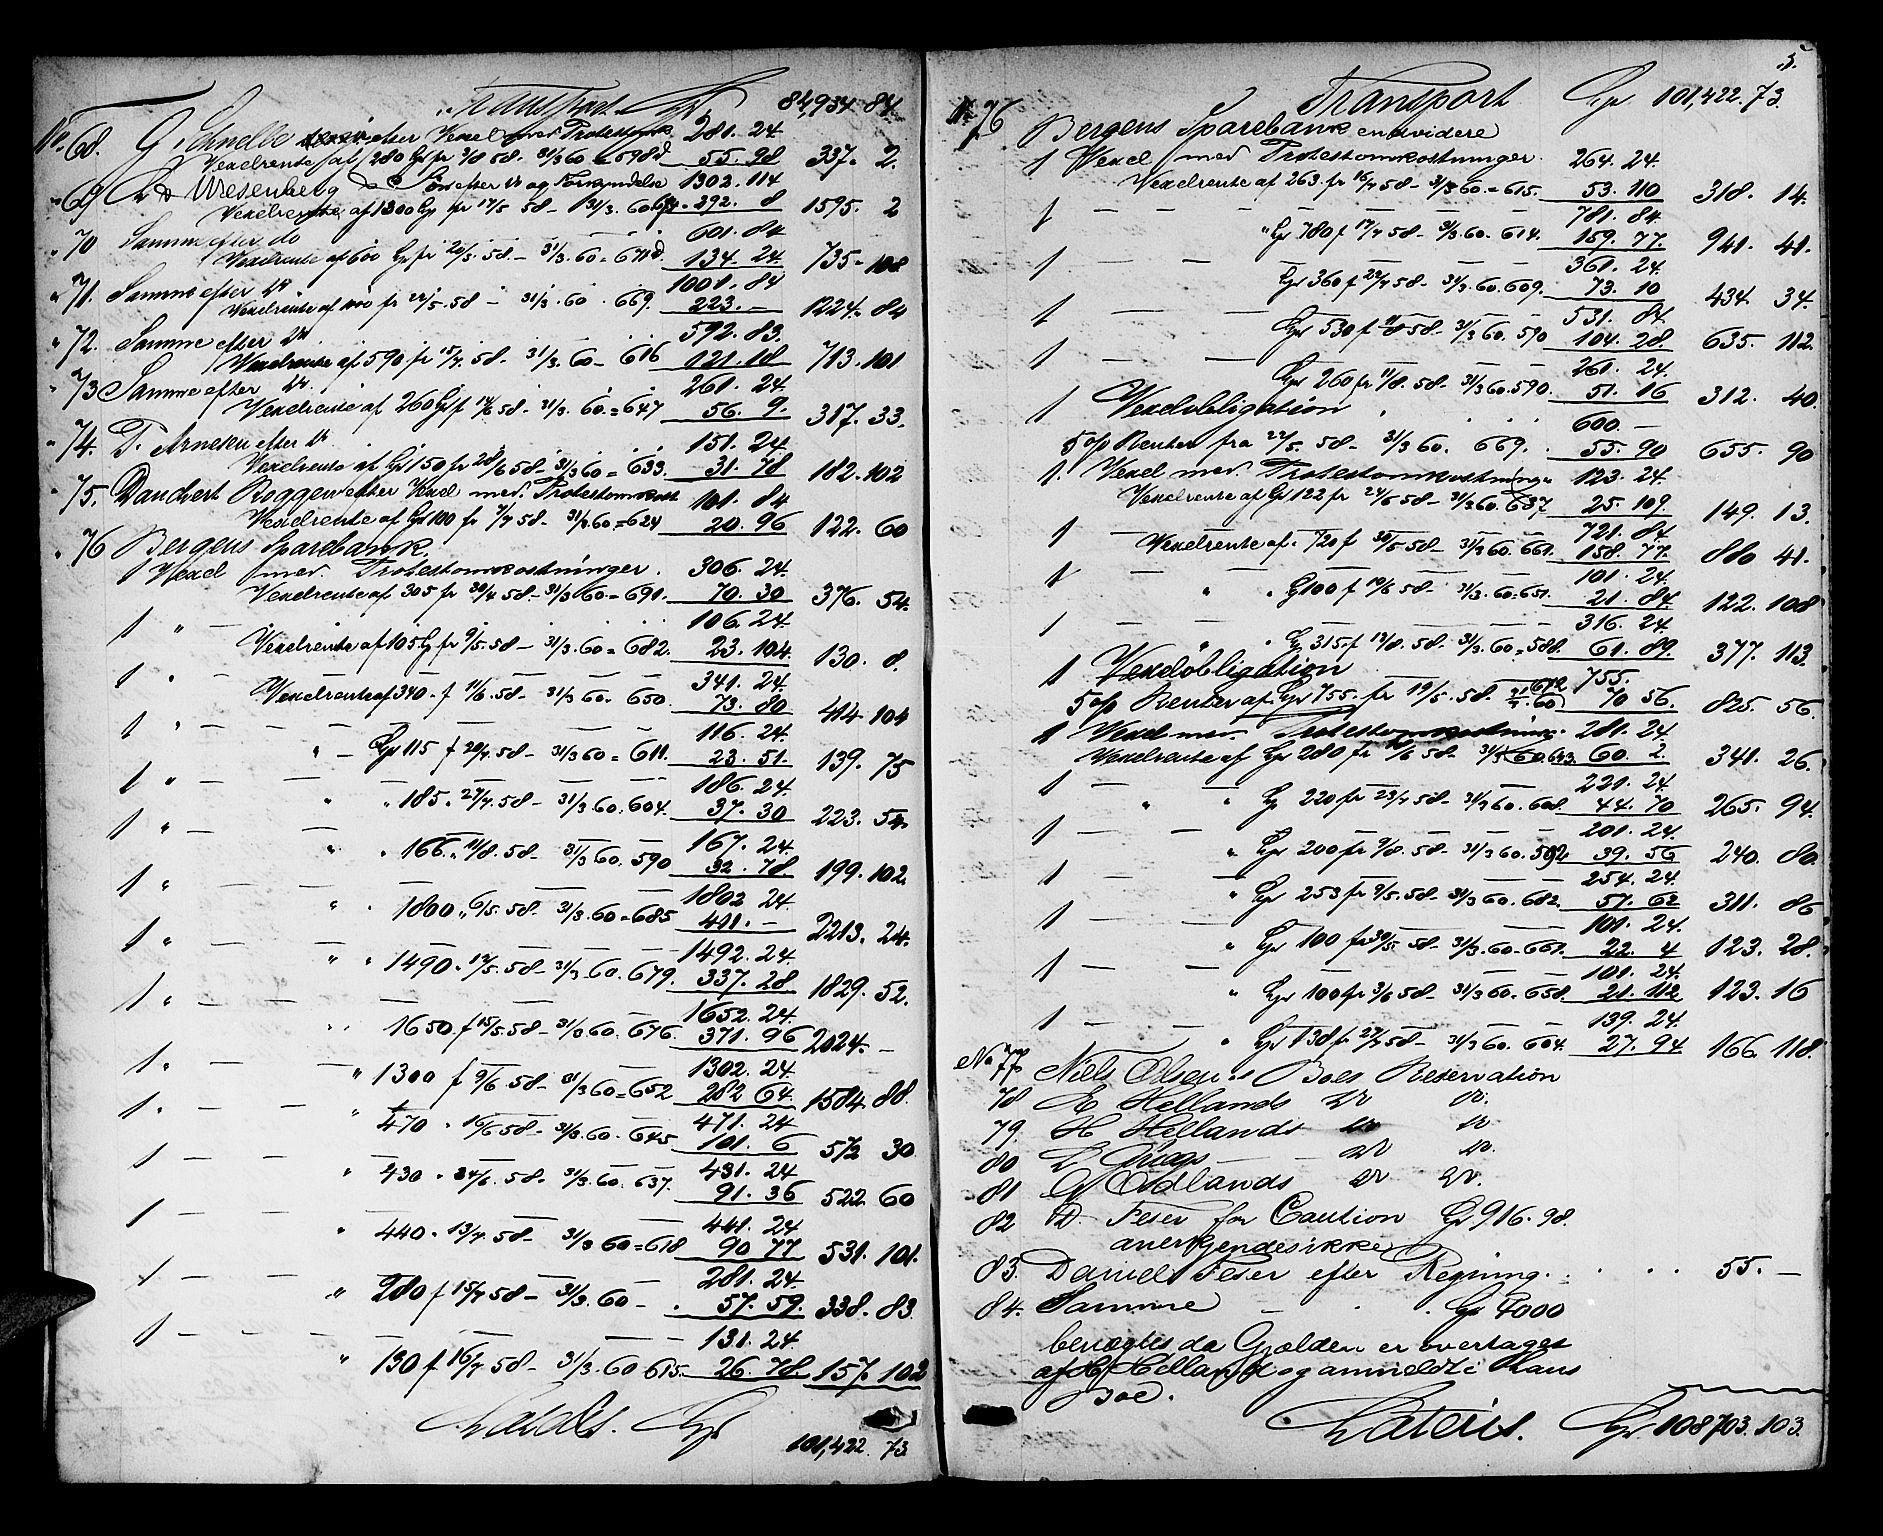 Transport Spr 84,934. 84.
No 68. G. Schnelle efter Vexel med Protestomk 281. 24.
Vexelrente af 280 Spr fr 9/8 58. 31/3 60 = 598 d 55. 98. 337. 2.
" 69 Wiesenberg & Søn efter do og Forkyndelse 1302. 114
Vexelrente af 1300 Spr fr 17/5 58 – 31/3. 60 292. 8 1595. 2
" 70 Samme efter do 601. 84
Vexelrente af 600 Spr fr 20/5. 58 – 31/3. 60 = 671 d 134. 24. 735. 108
" 71. Samme efter do 1001. 84
Vexelrente af 1000 fr 22/5. 58 – 31/3. 60. 669. 223. – 1224. 84
" 72. Samme efter do 592. 83.
Vexelrente af 590 fr 15/7. 58. 31/3. 60 – 616 121. 18 713. 101
" 73 Samme efter do. 261. 24
Vexelrente af 260 Spr f 14/6 58 – 31/3. 60. = 647 56. 9. 317. 33.
" 74. T. Arnesen efter do 151. 24
Vexelrente af Spr 150 fr 28/6 58 – 31/3 60 = 633. 31. 78 182. 102
" 75. Danckert Roggen efter Vexel med Protestomkost 101. 84
Vexelrente af Spr 100 fr 7/7 58 – 31/3 60 = 624 20. 96 122. 60
" 76 Bergens Sparebank.
1 Vexel med Protestomkostninger. 306. 24.
Vexelrente af 305 fr 30/4 58 – 31/3 60 = 691. 70. 30 376. 54.
1 " – 106. 24.
Vexelrente af 105 Spr fr 9/5. 58 – 31/3. 60 = 682. 23. 104. 130. 8.
1 " – 341. 24.
Vexelrente af 340 f 11/6. 58 – 31/3 60. 650. 73. 80 414. 104
1 " – – – – 116. 24.
" – Spr 115 f 20/7. 58 – 31/3 60 = 611. 23. 51. 139. 75
1 " – – 186. 24.
" " 185. 27/7. 58 – 31/3. 60. 604. 37. 30 223. 54.
1 " – – 167. 24.
" " 166. 11/8. 58 – 31/3 60. 590 32. 78 199. 102.
1 " – – – 1802 24.
" " 1800 " 6/5. 58 – 31/3. 60 = 685 411. – 2213. 24.
1 " – – – 1492. 24.
" " 1490. 12/5. 58 – 31/3 60. 679. 337. 28 1829. 52.
1 " – – – 1652. 24.
" " 1650. f 15/5. 58 – 31/3 60. 676. 371. 96 2024. –
1 " – – – 1302. 24.
" 1300 f 9/6. 58 – 31/3 60 = 652 282 64. 1584. 88.
1. – – – 471. 24
" 470 " 16/6 58 – 31/3. 60. 645 101. 6 572 30
1 – – – 431. 24
" 430 " 24/6. 58. 31/3. 60. 637. 91. 36 522. 60
1 – – – 441. 24
" 440 " 13/7. 58 – 31/3 60 = 618 90 77 531. 101.
1 – – – 281. 24.
" 280 f 15/7. 58 – 31/3. 60 – 57. 59. 338. 83.
1 – – – 131. 24.
" 130 f 16/7 58 – 31/3. 60 615. 26. 78. 157. 102
Lateris. Spr 101,422. 73
5.
Transport Spr 101,422. 73.
No 76 Bergens Sparebank endvidere
1 Vexel med Protestomkostninger. 264. 24.
Vexelrente af 263. fr 16/7 58 – 31/3 60. = 615. 53. 110 318. 14.
1 – – – – 781. 84
" Spr 780 f 17/7 58 – 31/3. 60. 614. 159. 77. 941. 41.
1 – – – 361. 24.
Spr 360 f 22/7 58 – 31/3. 60. 609. 73. 10 434. 34.
1 – – – 531. 84.
Spr 530 f 11/8 58 – 31/3 60. 590 104. 28 635. 112.
1 – – 261. 24.
Spr 260 fr 11/8. 58 – 31/3 60. 590. 51. 16 312. 40.
1 Vexelobligation 600. –
5 o/o Renter fra 22/5. 58 – 31/3 60. 669. 55. 90 655. 90
1. Vexel med Protestomkostninge 123. 24.
Vexelrente af Spr 122 fr 24/6 58 – 31/3 60. 637 25. 109. 149. 13.
1 – – – 721. 84
Vexelrente af 720 f 30/5 58 – 31/3 60. 661. 158. 77. 880 41.
1 – – – 101. 24.
" " Spr 100 f 10/6 58 – 31/3. 60 = 651. 21. 84 122. 108
1 – – – 316. 24.
" " Spr 315. f 13/8. 58. 31/3. 60 = 588. 61. 89. 377. 113.
1 Vexelobligation 755.
5 o/o Renter af Spr 755. fr 19/5. 58. 31/3. 60 672 70 56. 825. 56.
1 Vexel med Protestomkostning. 281. 24
Vexelrente af Spr 280 fr 18/6 58 – 31/3 60. 643. 60. 2. 341. 26.
1 – – – 221. 24
" " Spr 220 fr 23/7 58 – 31/3 60. 608. 44. 70 265. 94.
1 – – – 201. 24.
" Spr 200 fr 9/8. 58 – 31/3 60. 592 39. 56 240. 80.
1 – – – 254. 24.
" Spr 253 fr 9/5. 58 – 31/3 60. 682. 57. 62 311. 86
1 – – – 101. 24.
" Spr 100 fr 30/5 58 – 31/3. 60 – 661. 22. 4 123. 28.
1 – – – 101. 24.
" Spr 100 fr 3/6 58 – 31/3 60 – 658. 21. 112 123. 16
1 – – – 139. 24.
" Spr 138 f 27/7 58 – 31/3 60. 604. 27. 94 166. 118.
No 77 Niels Olsen Boes Reservation
78 E. Hellands do do.
79. H Hellands do do
80 L. Krogs – do do.
81 O Odlands do do.
82 D. Feser for Caution Spr 916. 98.
anerkjendes ikke
83. Daniel Feser efter Regning. 55. –
84. Samme – Spr 4000
benegtes da Gjælden er overtaget
af H. Helland og anmeldt i Hans
Boe.
Lateris. Spr 108703. 103.